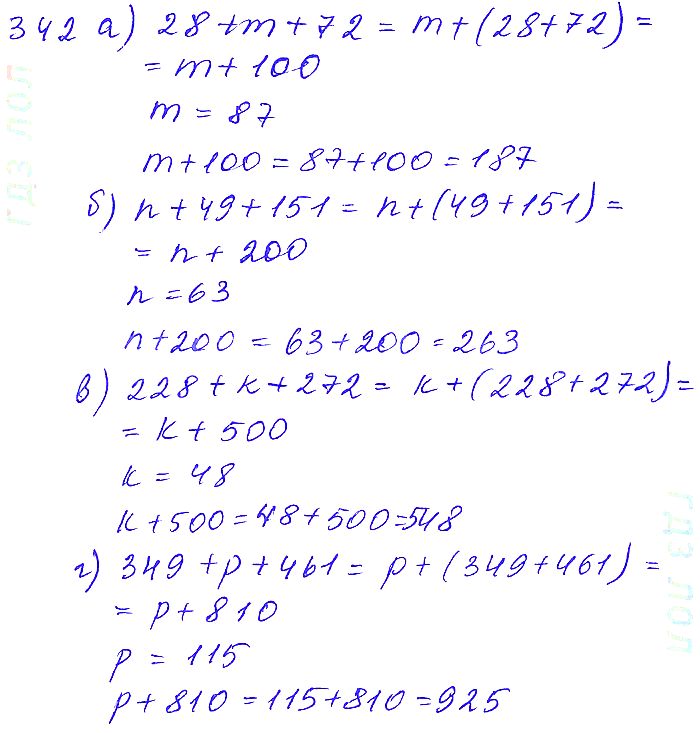 342 а) 28+m+72 = m+(28+72) =
= m+100
m = 87
m+100 = 87+100 = 187
б) n+49+151 = n+(49+151) =
= n+200
n = 63
n+200 = 63+200 = 263
в) 228+к+272 = к+(228+272) =
= к+500
к = 48
к+500 = 48+500 = 548
г) 349+p+461 = p+(349+461) =
= p+810
p = 115
p+810 = 115+810 = 925
гдз лол
гдз лол